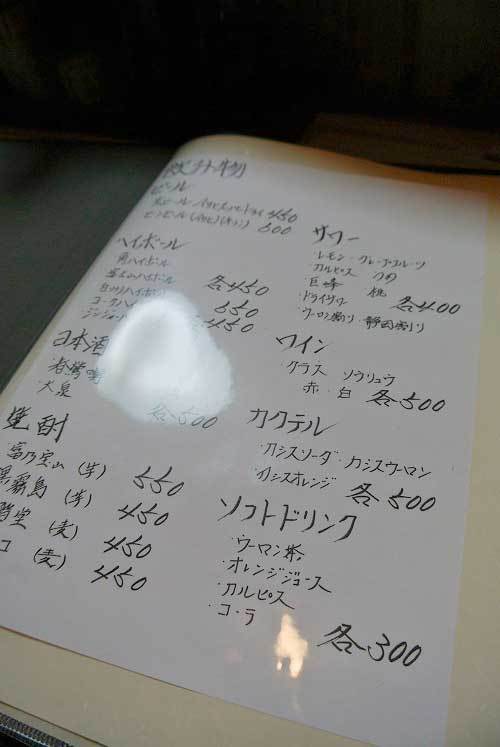 飲み物
ビール
生ビール アサヒスーパードライ 450
ビンビール(アサヒ)(キリン) 600
ハイボール
角ハイボール
ハイボール
各450
コークハイ
550
ジンジャ
450
日本酒
大泉
各500
焼酎
富乃宝山(芋) 550
黒霧島(芋) 450
(麦) 450
コ(麦) 450
サワー
・レモン ・グレープフルーツ
・カルピス
・巨峰 ・桃
・ドライサワー 各400
・ウーロン割り ・静岡割り
ワイン
・グラス ソウリュウ
赤・白 各500
カクテル
・カシスソーダ・カシスウーロン
・カシスオレンジ 各500
ソフトドリンク
・ウーロン茶
・オレンジジュース
・カルピス
・コーラ
各300